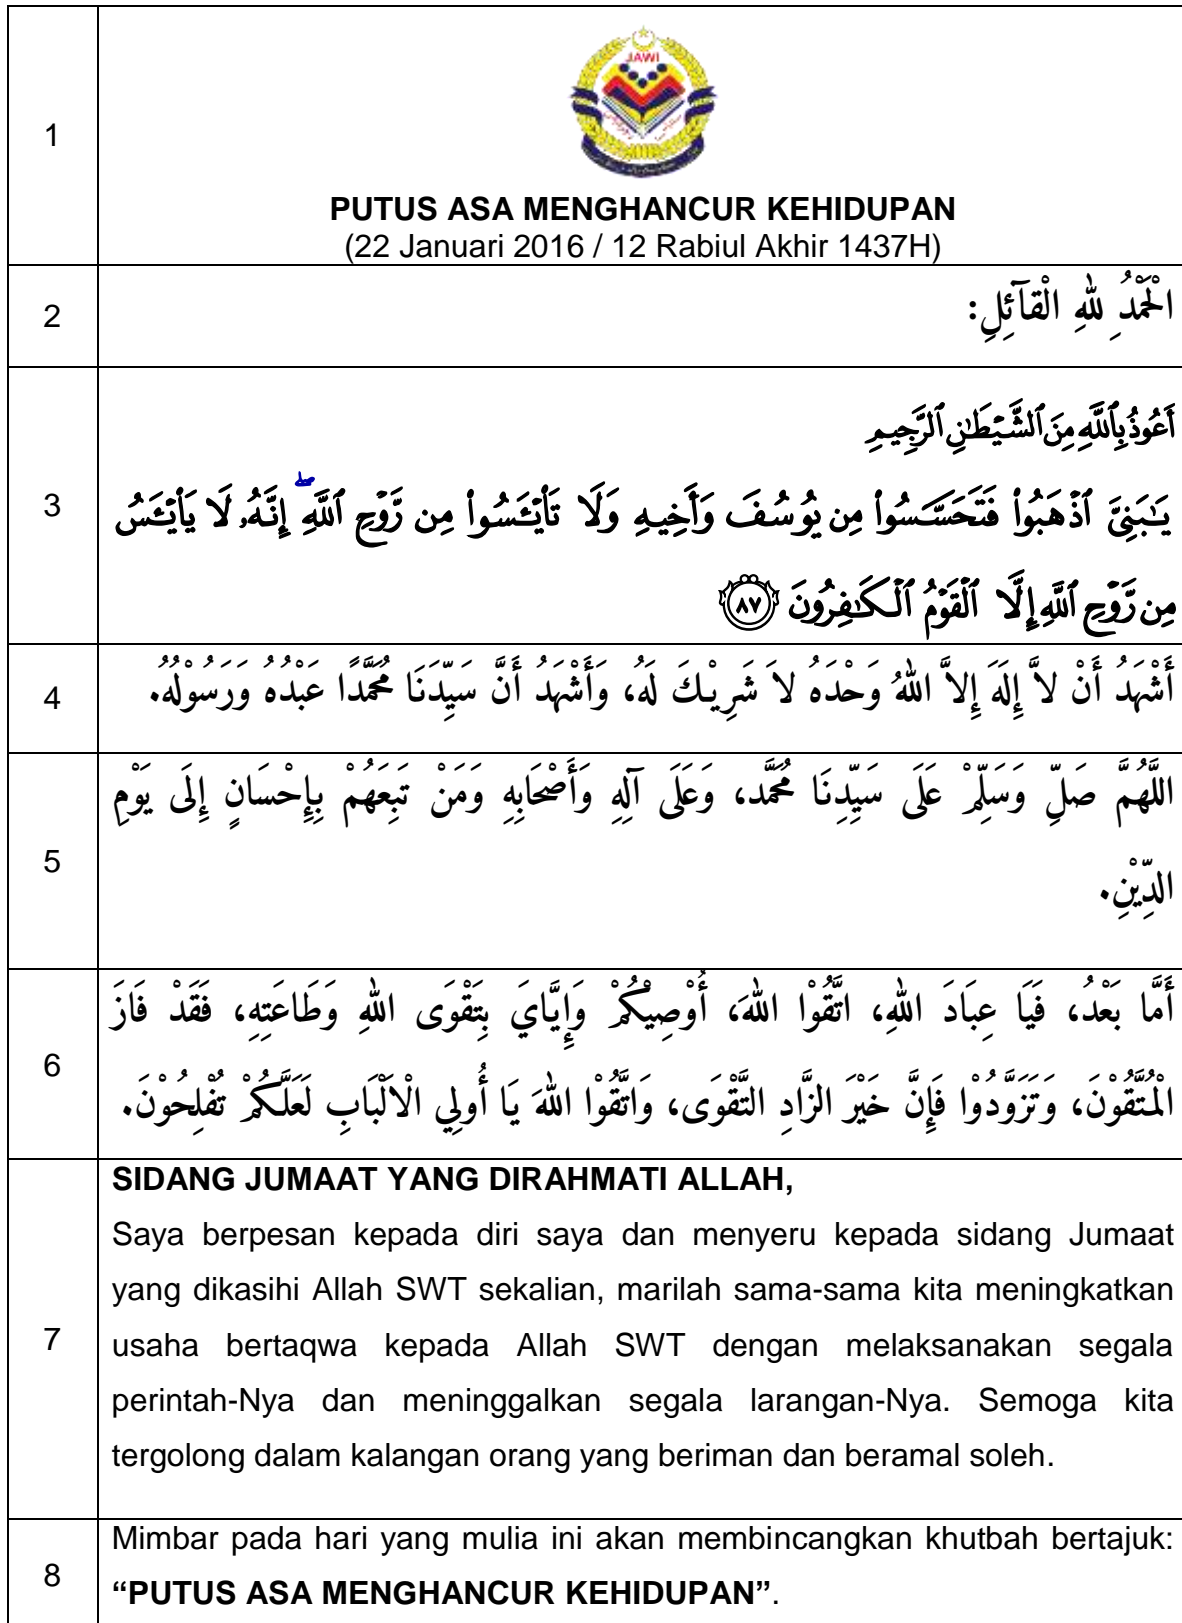 1
JAWI
PUTUS ASA MENGHANCUR KEHIDUPAN
(22 Januari 2016 / 12 Rabiul Akhir 1437H)
2
الْحَمْدُ لِلّٰهِ الْقَآئِلِ:
3
أَعُوذُ بِٱللَّهِ مِنَ ٱلشَّيْطَٰنِ ٱلرَّجِيمِ
يَـٰبَنِىَّ ٱذْهَبُوا۟ فَتَحَسَّسُوا۟ مِن يُوسُفَ وَأَخِيهِ وَلَا تَا۟يْـَٔسُوا۟ مِن رَّوْحِ ٱللَّهِ ۖ إِنَّهُۥ لَا يَا۟يْـَٔسُ
مِن رَّوْحِ ٱللَّهِ إِلَّا ٱلْقَوْمُ ٱلْكَـٰفِرُونَ ﴿٨٧﴾
4
أَشْهَدُ أَنْ لاَّ إِلَهَ إِلاَّ اللهُ وَحْدَهُ لاَ شَرِيْكَ لَهُ، وَأَشْهَدُ أَنَّ سَيِّدَنَا مُحَمَّدًا عَبْدُهُ وَرَسُوْلُهُ.
5
اللَّهُمَّ صَلِّ وَسَلِّمْ عَلَى سَيِّدِنَا مُحَمَّد، وَعَلَى آلِهِ وَأَصْحَابِهِ وَمَنْ تَبِعَهُمْ بِإِحْسَانٍ إِلَى يَوْمِ
الدِّيْنِ.
6
أَمَّا بَعْدُ، فَيَا عِبَادَ اللهِ، اتَّقُوْا اللهَ، أُوْصِيْكُمْ وَإِيَّايَ بِتَقْوَى اللهِ وَطَاعَتِهِ، فَقَدْ فَازَ
الْمُتَّقُوْنَ، وَتَزَوَّدُوْا فَإِنَّ خَيْرَ الزَّادِ التَّقْوَى، وَاتَّقُوْا اللهَ يَا أُولِي الْالَبَابِ لَعَلَّكُمْ تُفْلِحُوْنَ.
7
SIDANG JUMAAT YANG DIRAHMATI ALLAH,
Saya berpesan kepada diri saya dan menyeru kepada sidang Jumaat
yang dikasihi Allah SWT sekalian, marilah sama-sama kita meningkatkan
usaha bertaqwa kepada Allah SWT dengan melaksanakan segala
perintah-Nya dan meninggalkan segala larangan-Nya. Semoga kita
tergolong dalam kalangan orang yang beriman dan beramal soleh.
8
Mimbar pada hari yang mulia ini akan membincangkan khutbah bertajuk:
“PUTUS ASA MENGHANCUR KEHIDUPAN”.